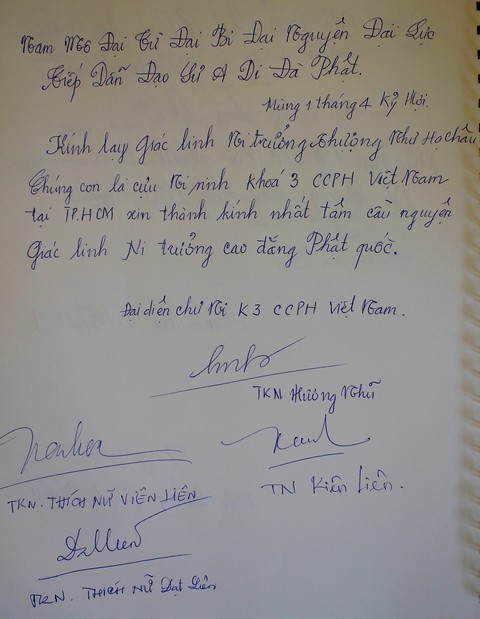 Nam Mô Đại Từ Đại Bi Đại Nguyện Đại Lực
Tiếp Dẫn Đạo Sư A Di Đà Phật.
Mùng 1 tháng 4 Kỷ Hợi.
Kính lạy Giác linh Ni trưởng Thượng Như Hạ Châu
Chúng con là cựu Ni sinh Khoá 3 CCPH Việt Nam
tại TP.HCM xin thành kính nhất tâm cầu nguyện
Giác linh Ni trưởng cao đăng Phật quốc.
Đại diện chư Ni K3 CCPH Việt Nam.
TKN Hương Nhũ
TKN. THÍCH NỮ VIÊN LIÊN
TN Kiên Liên.
TKN. THÍCH NỮ Đạt Liên